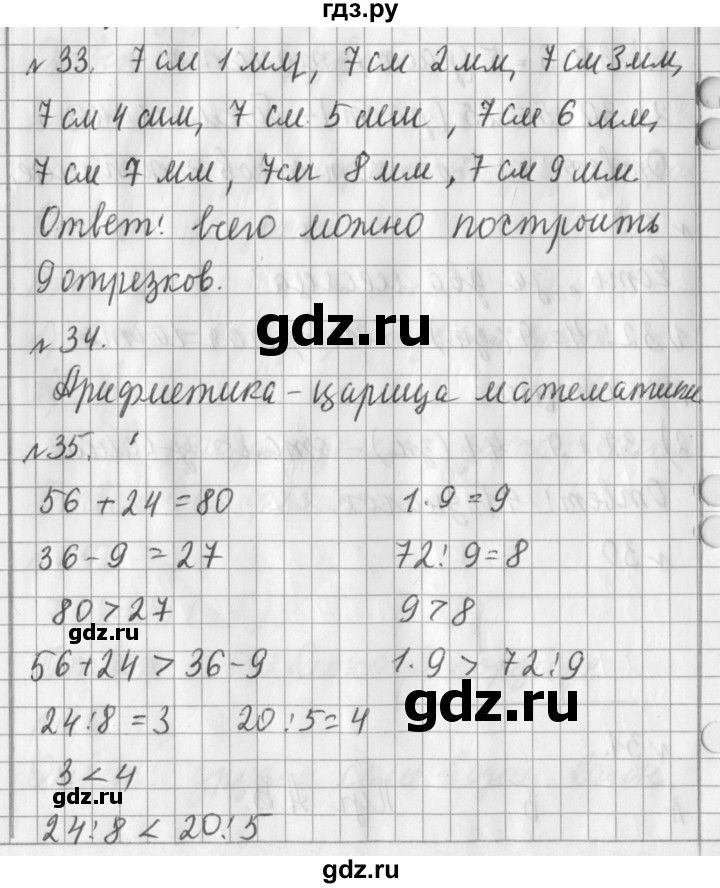 гдз.ру
№33. 7 см 1 мм, 7 см 2 мм, 7 см 3 мм,
7 см 4 мм, 7 см 5 мм, 7 см 6 мм,
7 см 7 мм, 7 см 8 мм, 7 см 9 мм.
Ответ: всего можно построить
9 отрезков.
gdz.ru
№34.
Арифметика - царица математики
№35.
56 + 24 = 80 1 · 9 = 9
36 - 9 = 27 72 : 9 = 8
80 > 27 9 > 8
gdz.ru
56 + 24 > 36 - 9 1 · 9 > 72 : 9
gdz.ru
24 : 8 = 3 20 : 5 = 4
3 < 4
gdz.ru
24 : 8 < 20 : 5
gdz.ru